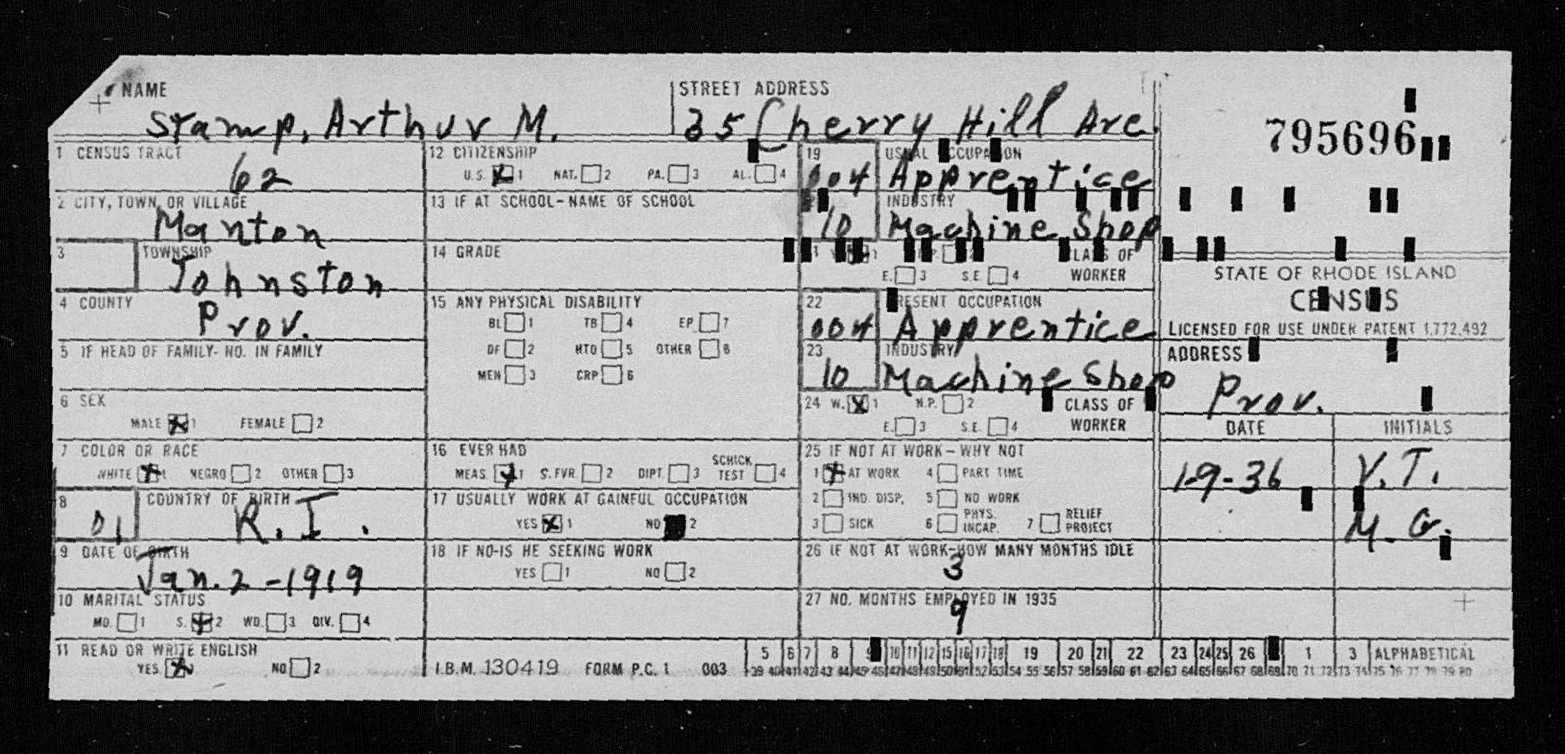 NAME STREET ADDRESS
Stamp, Arthur M. 25 Cherry Hill Ave.
795696
1 CENSUS TRACT
62
2 CITY, TOWN, OR VILLAGE
Manton
3 TOWNSHIP
Johnston
4 COUNTY
Prov.
5 IF HEAD OF FAMILY- NO. IN FAMILY
6 SEX
MALE X 1 FEMALE 2
7 COLOR OR RACE
WHITE X 1 NEGRO 2 OTHER 3
8 COUNTRY OF BIRTH
01 R.I.
9 DATE OF BIRTH
Jan. 2 - 1919
10 MARITAL STATUS
MD. 1 S. X 2 WD. 3 DIV. 4
11 READ OR WRITE ENGLISH
YES X 1 NO 2
12 CITIZENSHIP
U.S. X 1 NAT. 2 PA. 3 AL. 4
13 IF AT SCHOOL-NAME OF SCHOOL
14 GRADE
15 ANY PHYSICAL DISABILITY
BL 1 TB 4 EP 7
DF 2 HTD 5 OTHER 8
MEN 3 CRP 6
16 EVER HAD
MEAS. X 1 S.FVR. 2 DIPT. 3 SCHICK TEST 4
17 USUALLY WORK AT GAINFUL OCCUPATION
YES X 1 NO 2
18 IF NO-IS HE SEEKING WORK
YES 1 NO 2
19 USUAL OCCUPATION
004 Apprentice
INDUSTRY
10 Machine Shop
CLASS OF
E. 3 S.E. 4 WORKER
22 PRESENT OCCUPATION
004 Apprentice
23 INDUSTRY
10 Machine Shop
24 W. X 1 N.P. 2 CLASS OF
E. 3 S.E. 4 WORKER
25 IF NOT AT WORK-WHY NOT
1 X AT WORK 4 PART TIME
2 IND. DISP. 5 NO WORK
3 SICK 6 PHYS. INCAP. 7 RELIEF PROJECT
26 IF NOT AT WORK-HOW MANY MONTHS IDLE
3
27 NO. MONTHS EMPLOYED IN 1935
9
STATE OF RHODE ISLAND
CENSUS
LICENSED FOR USE UNDER PATENT 1,772,492
ADDRESS
Prov.
DATE INITIALS
1-9-36 V.T.
M.G.
I.B.M. 130419 FORM P.C. 1 003
5 6 7 8 9 10 11 12 15 16 17 18 19 20 21 22 23 24 25 26 1 3 ALPHABETICAL